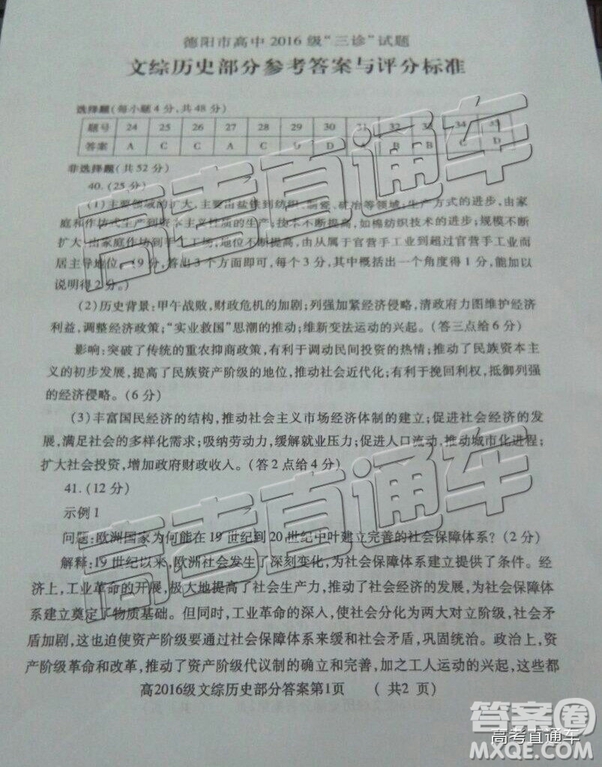 德阳市高中2016级“三诊”试题
文综历史部分参考答案与评分标准
选择题(每小题4分,共48分)
题号 24 25 26 27 28 29 30 31 32 33 34 35
答案 A C C A C D B B C D
非选择题(共52分)
40.(25分)
(1)主要领域的扩大,主要由盐铁到纺织、制瓷、矿冶等领域;生产方式的进步,由家
庭和作坊式生产到资本主义性质的生产;技术不断提高,如棉纺织技术的进步;规模不断
扩大,由家庭作坊到手工工场;地位不断提高,由从属于官营手工业到超过官营手工业而
居主导地位。(9分,答出3个方面即可,每个3分,其中概括出一个角度得1分,能加以
说明得2分。)
(2)历史背景:甲午战败,财政危机的加剧;列强加紧经济侵略,清政府力图维护经济
利益,调整经济政策;“实业救国”思潮的推动;维新变法运动的兴起。(答三点给6分)
影响:突破了传统的重农抑商政策,有利于调动民间投资的热情;推动了民族资本主
义的初步发展,提高了民族资产阶级的地位,推动社会近代化;有利于挽回利权,抵御列强
的经济侵略。(6分)
(3)丰富国民经济的结构,推动社会主义市场经济体制的建立;促进社会经济的发
展,满足社会的多样化需求;吸纳劳动力,缓解就业压力;促进人口流动,推动城市化进程;
扩大社会投资,增加政府财政收入。(答2点给4分)
41.(12分)
示例1
问题:欧洲国家为何能在19世纪到20世纪中叶建立完善的社会保障体系?(2分)
解释:19世纪以来,欧洲社会发生了深刻变化,为社会保障体系建立提供了条件。经
济上,工业革命的开展,极大地提高了社会生产力,推动了社会经济的发展,为社会保障体
系建立奠定了物质基础。但同时,工业革命的深入,使社会分化为两大对立阶级,社会矛
盾加剧,这也迫使资产阶级要通过社会保障体系来缓和社会矛盾,巩固统治。政治上,资
产阶级革命和改革,推动了资产阶级代议制的确立和完善,加之工人运动的兴起,这些都
高2016级文综历史部分答案第1页 (共2页)
高考直通车
高考直通车
答案圈
高考直通车
MXQE.COM